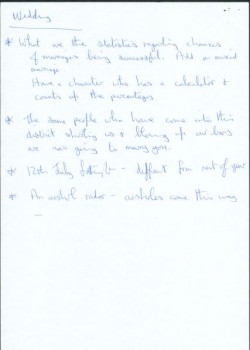 Wedding
* What are the statistics regarding chances
of marriages being successful. Add a mixed
marriage
Have a character who has a calculator &
counts up the percentages.
* The same people who have come into this
district shooting us & blowing up our homes
we are going to marry you.
* 12th July - different from rest of year
* An asshole radar - assholes come this way